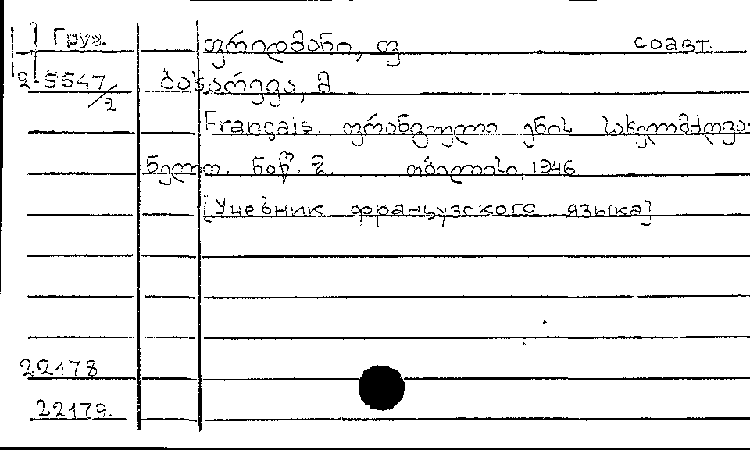 Груз. ფრიდმანი, ფ соавт.
2-5547/2 ბასარევა, მ
Français. ფრანგული ენის სახელმძღვა-
ნელო. ნაწ. 2. თბილისი, 1946
[Учебник французского языка]
22178
22179.